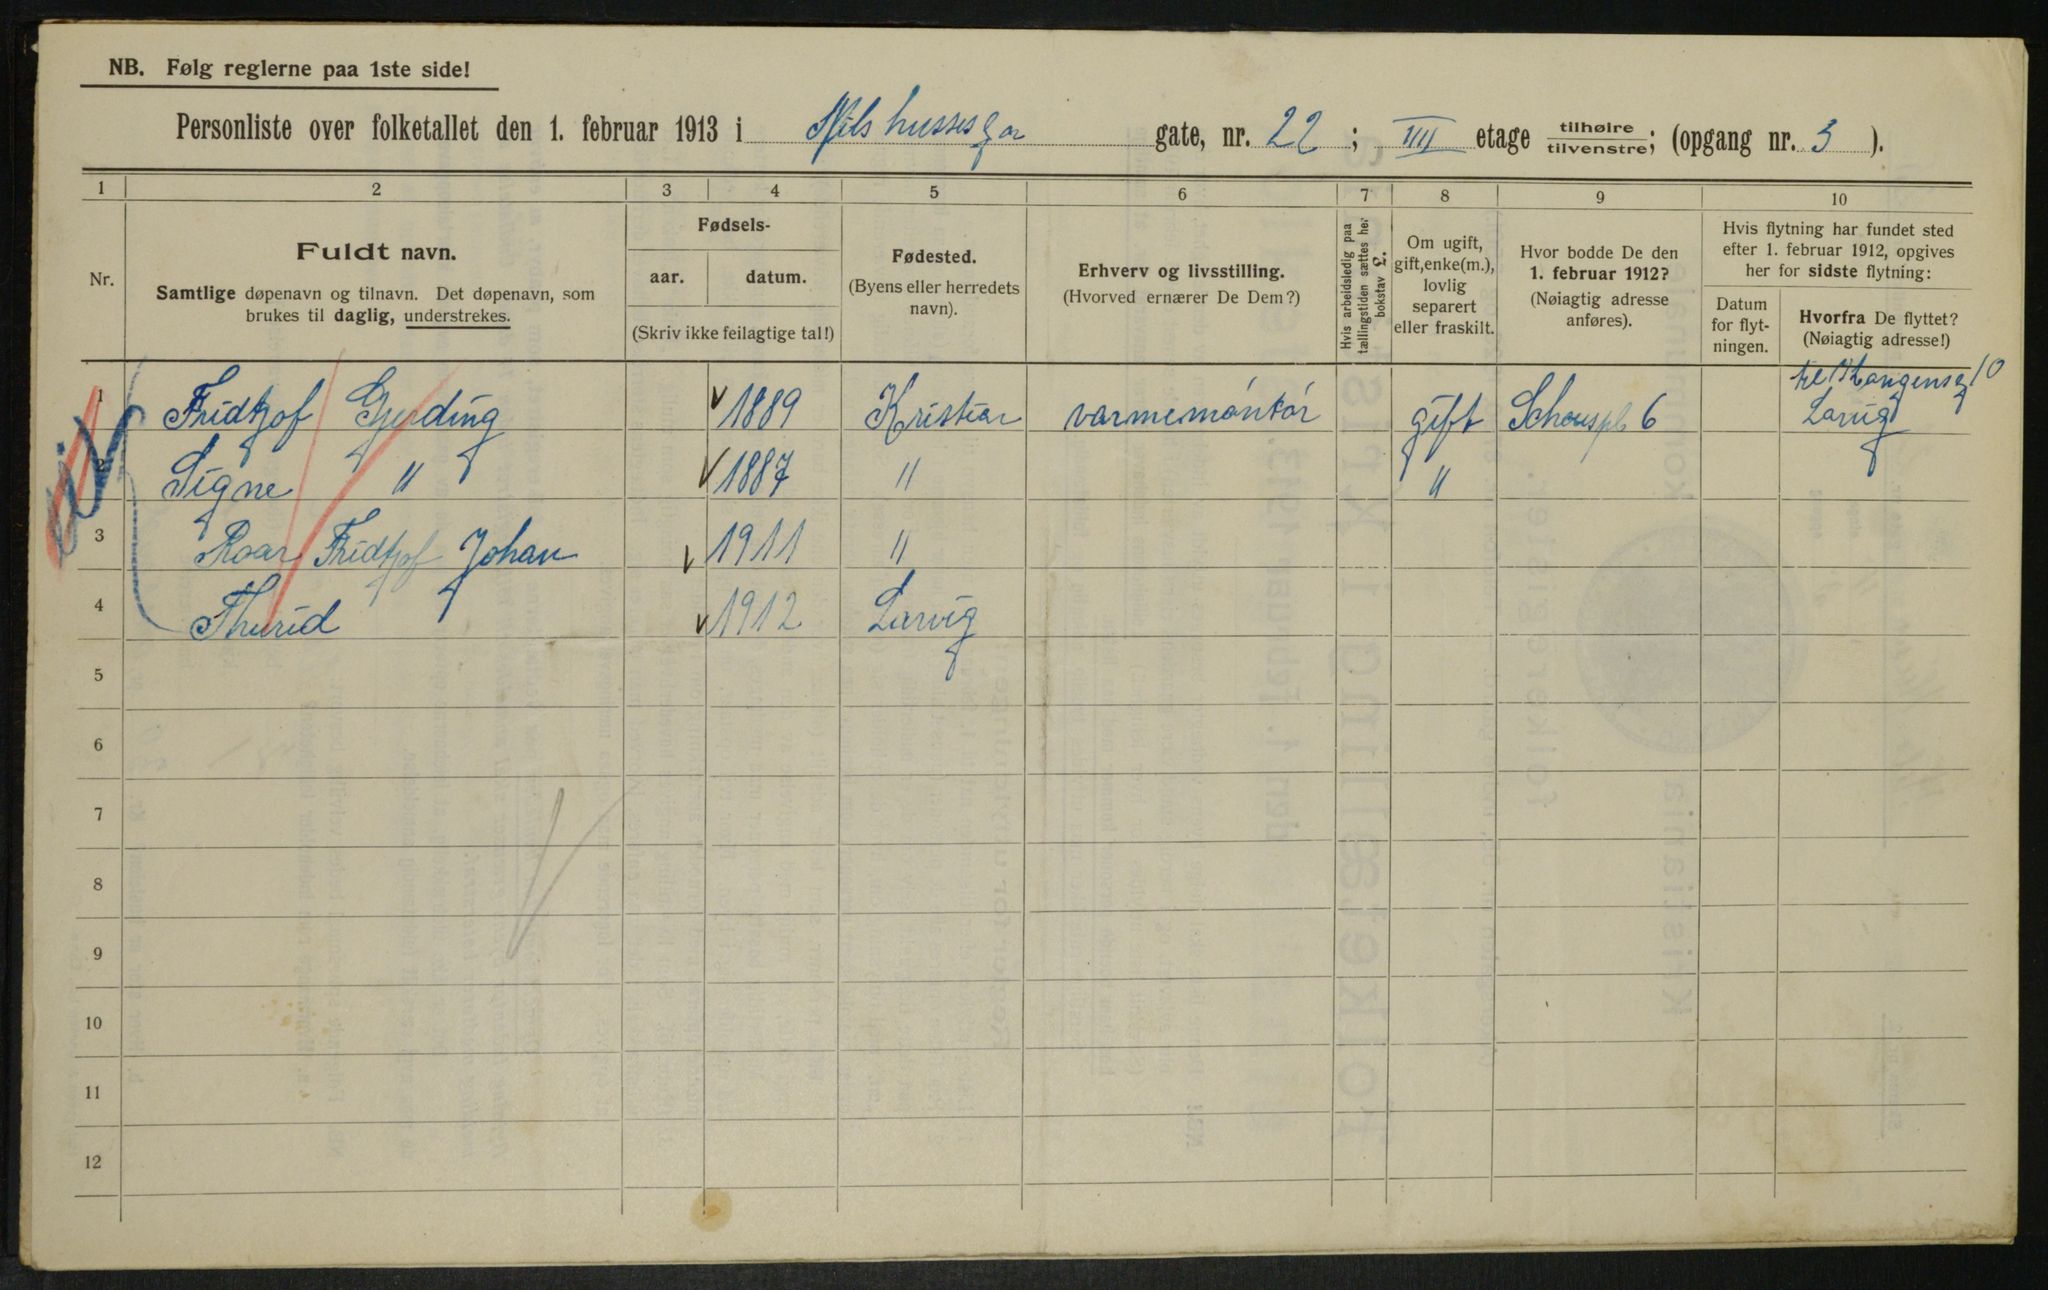 NB. Følg reglerne paa 1ste side!
Personliste over folketallet den 1. februar 1913 i Nils hussesgr gate, nr. 22 ; IIII etage tilhøire tilvenstre; (opgang nr. 3 ).
1 2 3 4 5 6 7 8 9 10
Nr.
Fuldt navn.
Samtlige døpenavn og tilnavn. Det døpenavn, som
brukes til daglig, understrekes.
Fødsels-
aar. datum.
(Skriv ikke feilagtige tal!)
Fødested.
(Byens eller herredets
navn).
Erhverv og livsstilling.
(Hvorved ernærer De Dem?)
Hvis arbeidsledig paa
tællingstiden sættes her
bokstav L.
Om ugift,
gift, enke(m.),
lovlig
separert
eller fraskilt.
Hvor bodde De den
1. februar 1912?
(Nøiagtig adresse
anføres).
Hvis flytning har fundet sted
efter 1. februar 1912, opgives
her for sidste flytning:
Datum
for flyt-
ningen.
Hvorfra De flyttet?
(Nøiagtig adresse!)
1 Fridtjof Gjerding 1889 Kristiar varmemontør gift Schouspl 6 Larvig
2 Signe " 1887 " "
3 Roar Fridtjof Johan 1911 "
4 Thurid 1912 Larvig
5
6
7
8
9
10
11
12